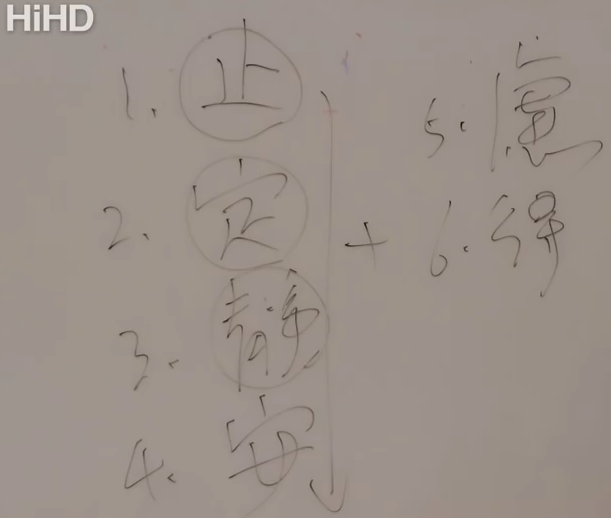 HiHD
1. 止
2. 定
3. 静
4. 安
+
5. 慮
6. 得